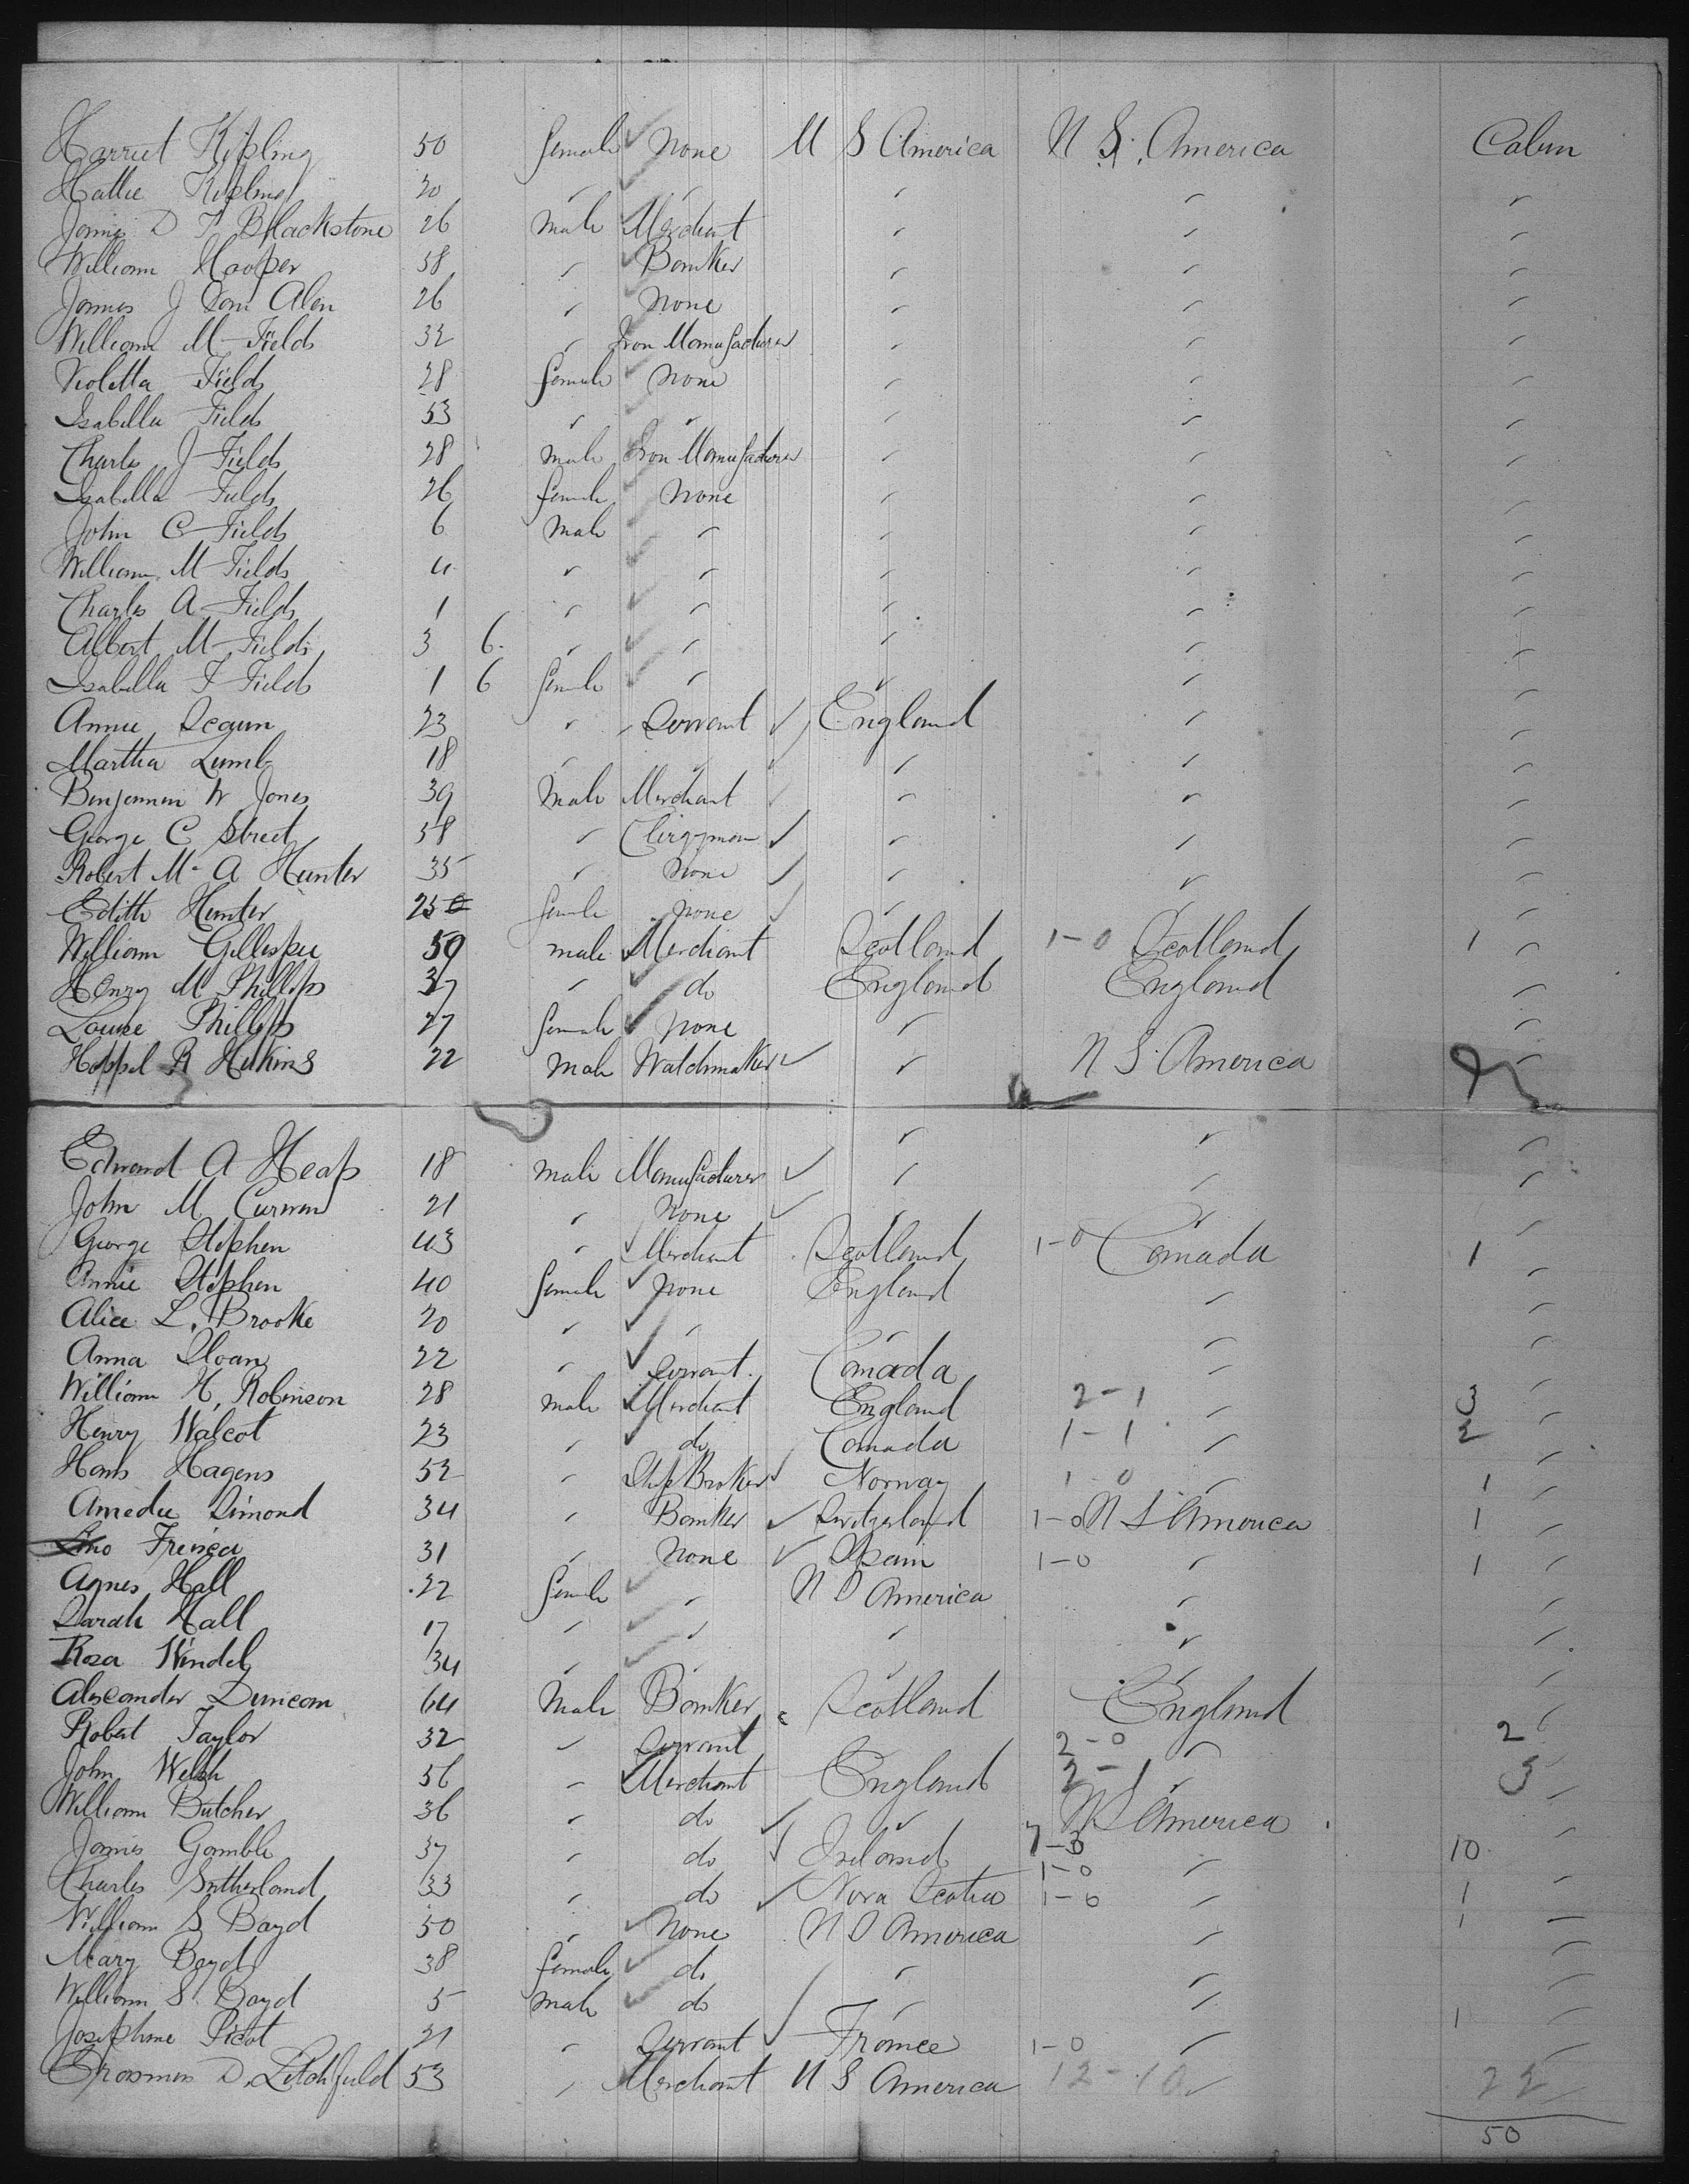 Harriet Kipling 50 female None U S America U S. America Cabin
Hattie Kipling 20 " " " " "
James D F Blackstone 26 male Merchant " " "
William Hooper 58 " Banker " " "
James J Van Alen 26 " None " " "
William M Fields 32 " Iron Manufacturer " " "
Violetta Fields 28 female None " " "
Isabella Fields 53 " " " " "
Charles J Fields 28 male Iron Manufacturer " " "
Isabella Fields 26 female None " " "
John C Fields 6 male " " " "
William M Fields 4 " " " " "
Charles A Fields 1 " " " " "
Albert M Fields 3 6 " " " " "
Isabella F Fields 1 6 female " " " "
Annie Seaum 23 " Servant England " "
Martha Lumb 18 " " " " "
Benjamin W Jones 39 Male Merchant " " "
George C Street 58 " Clergyman " " "
Robert Mc A Hunter 35 " None " " "
Edith Hunter 25 female none " " "
William Gillespie 59 male Merchant Scotland 1-0 Scotland 1 "
Henry M Phillips 37 " do England England "
Louise Phillips 27 female none " " "
R Hukins 22 Male Watchmaker " U S. America "
Edward A Heap 18 male Manufacturer " " "
John M Curwen 21 " None " " "
George Stephen 43 " Merchant Scotland 1-0 Canada 1 "
Annie Stephen 40 female none England " "
Alice L. Brooke 20 " " " " "
Anna Sloan 22 " Servant Canada " "
William H. Robinson 28 male Merchant England 2-1 " 3 "
Henry Walcot 23 " do Canada 1-1 " 2 "
Hans Hagens 52 " Ship Broker Norway 1-0 " 1 "
Amedee Simond 34 " Banker Switzerland 1-0 U S America 1 "
Lino Freinca 31 " None Spain 1-0 " 1 "
Agnes Hall 22 female " U S America " "
Sarah Hall 17 " " " " "
Rosa Windel 34 " " " " "
Alexander Duncan 64 Male Banker Scotland England "
Robert Taylor 32 " Servant " 2-0 " 2 "
John Welsh 56 " Merchant England 2-1 " 3 "
William Butcher 36 " do " U S America "
James Gamble 37 " do Ireland 7-3 " 10 "
Charles Sutherland 33 " do Nova Scotia 1-0 " 1 "
William S. Boyd 50 " None U S America 1-0 " 1 "
Mary Boyd 38 female do " " "
William S. Boyd 5 male do " " "
Josephine Picot 21 " Servant France 1-0 " 1 "
D. Litchfield 53 " Merchant U S America 12-10 " 22 "
50